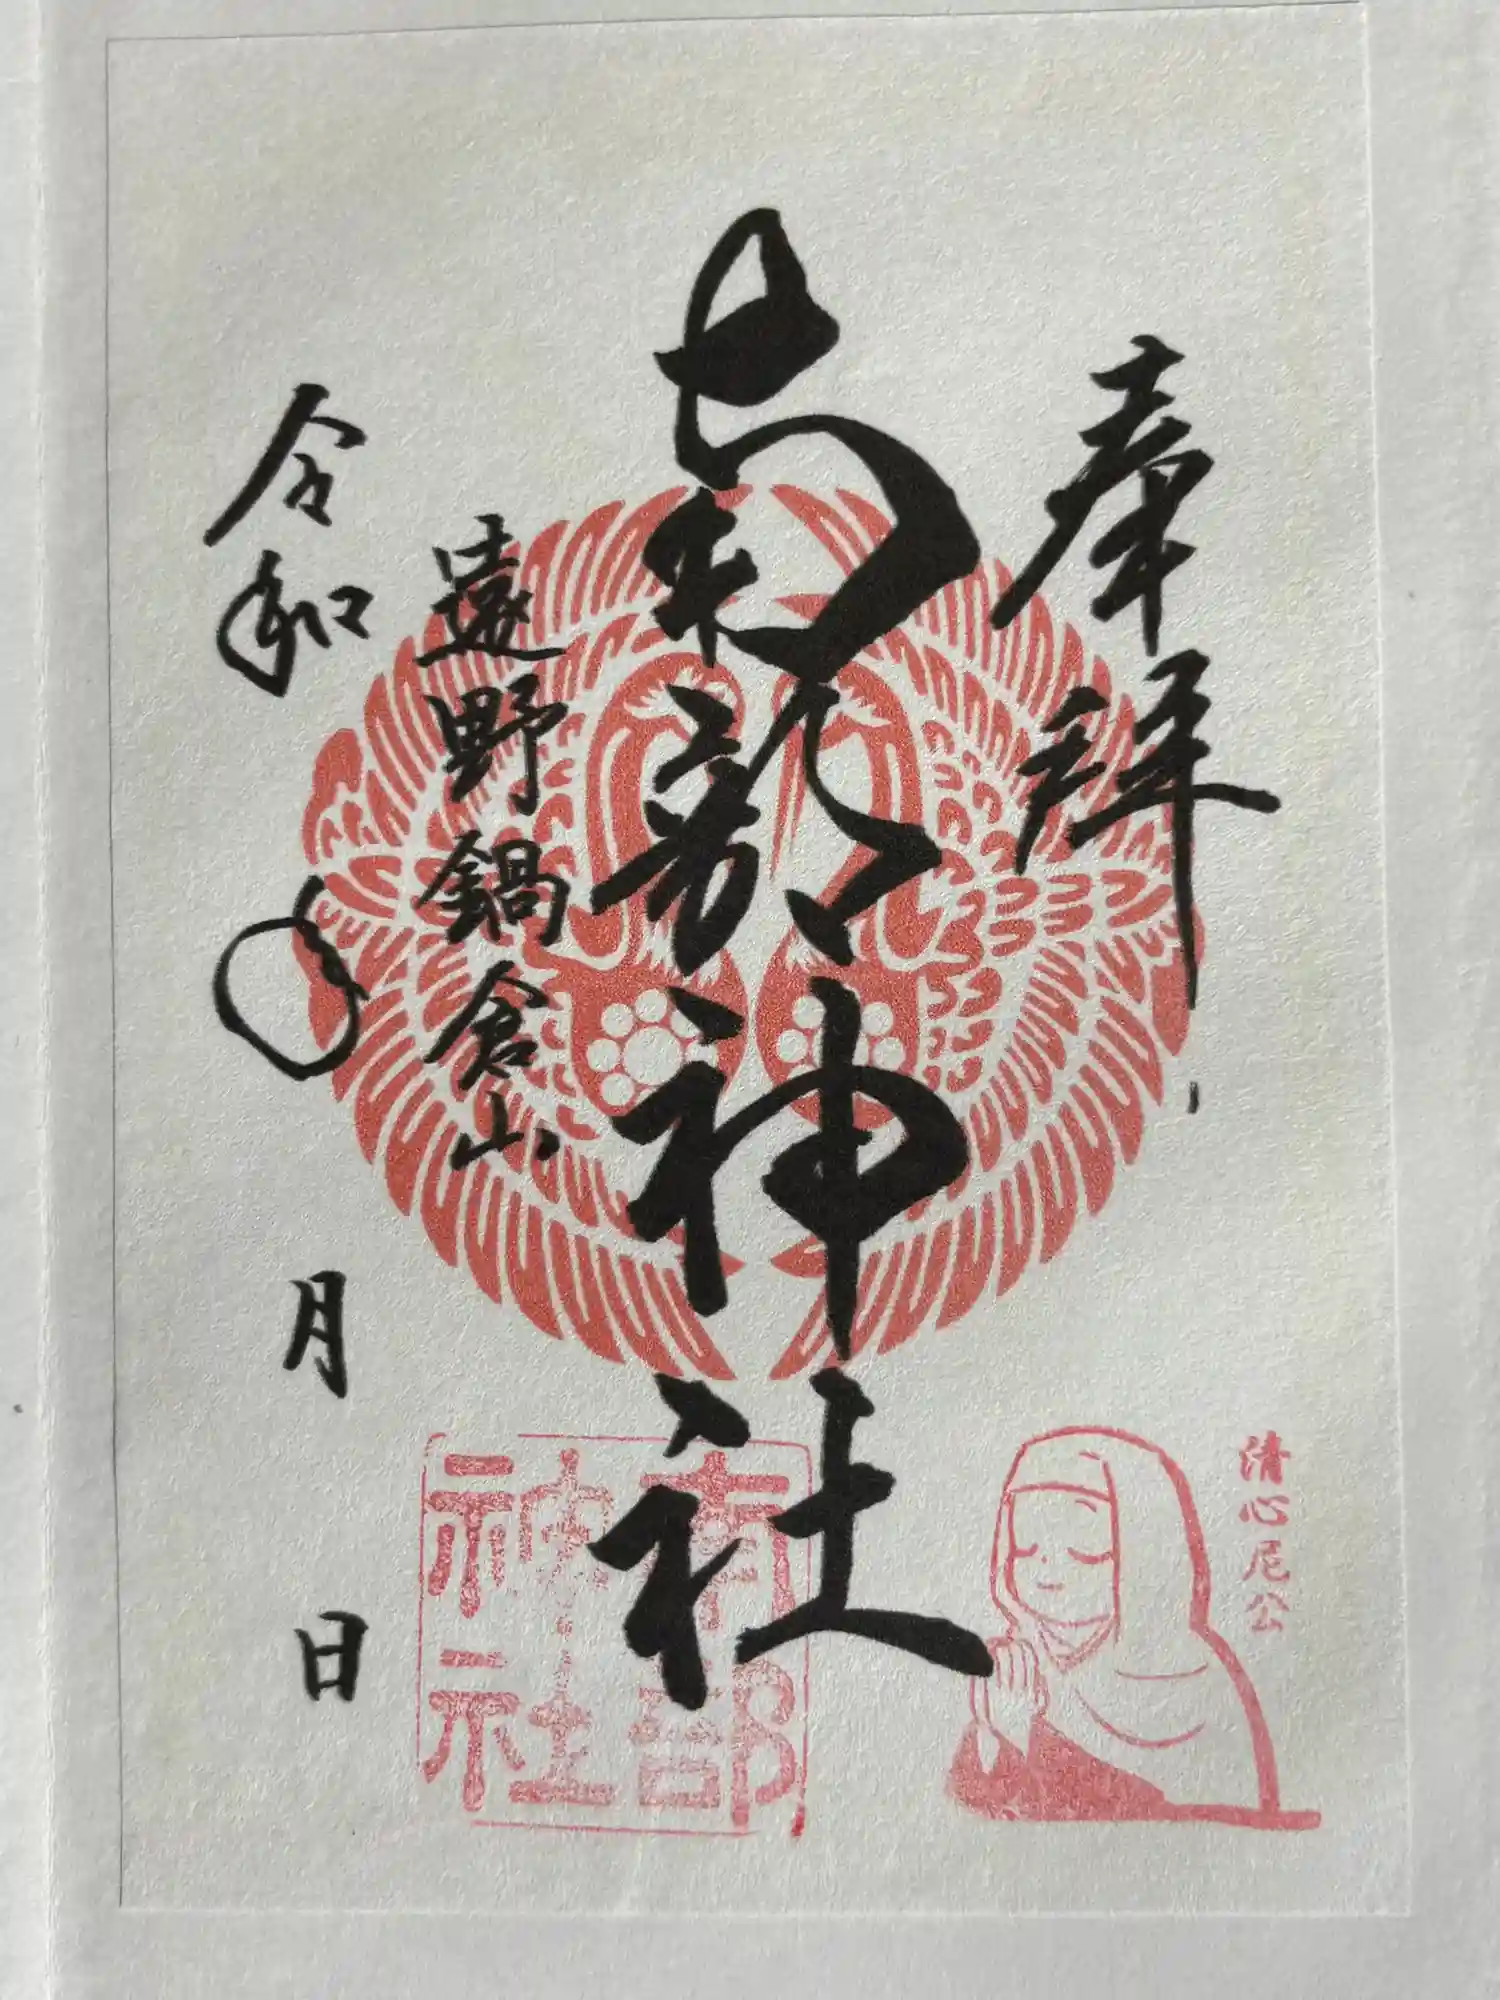 奉拝
南部神社
遠野鍋倉山
令和
月
日
清心尼公
南部
神社